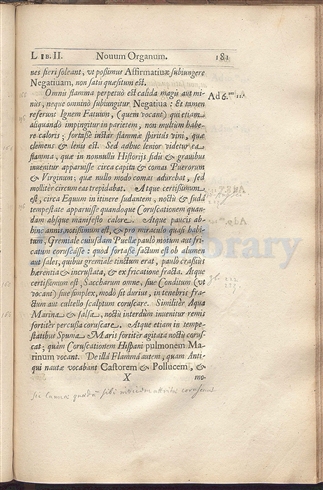 LIB. II. Novum Organum. 181
ues fieri soleant, vt possimus Affirmatiuæ subiungere
Negatiuam, non satis quæsitum est.
Omnis flamma perpetuò est calida magis aut mi-
nùs, neque omninò subiungitur Negatiua: Et tamen
referunt Ignem Fatuum, (quem vocant) qui etiam
aliquandò impingitur in parietem, non multùm habe-
re caloris; fortassè instar flammæ spiritûs vini, quæ
clemens & lenis est. Sed adhuc lenior videtur ea
flamma, quæ in nonnullis Historijs fidis & grauibus
inuenitur apparuisse circa capita & comas Puerorum
& Virginum; quæ nullo modo comas adurebat, sed
mollitèr circum eas trepidabat. Atque certissimum
est, circa Equum in itinere sudantem, noctu & sudâ
tempestate apparuisse quandoque Coruscationem quan-
dam absque manifesto calore. Atque paucis ab-
hinc annis, notissimum est, & pro miraculo quasi habi-
tum, Gremiale cuiusdam Puellæ paulò motum aut fri-
catum coruscasse: quod fortassè factum est ob alumen
aut sales, quibus gremiale tinctum erat, paulò crassiùs
hærentia & incrustata, & ex fricatione fracta. Atque
certissimum est, Saccharum omne, siue Conditum (vt
vocant) siue simplex, modò sit durius, in tenebris fra-
ctum aut cultello scalptum coruscare. Similitèr Aqua
Marina & salsa, noctu interdùm inuenitur remis
fortitèr percussa coruscare. Atque etiam in tempe-
statibus Spuma Maris fortitèr agitata noctu corus-
cat; quam Coruscationem Hispani pulmonem Ma-
rinum vocant. De illâ Flammâ autem, quam Anti-
qui nautæ vocabant Castorem & Pollucem, &
X mo-
Ad 6.am